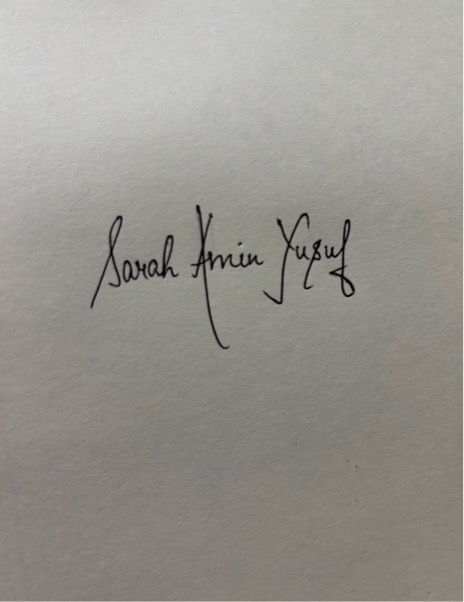 Sarah Amin Yusuf